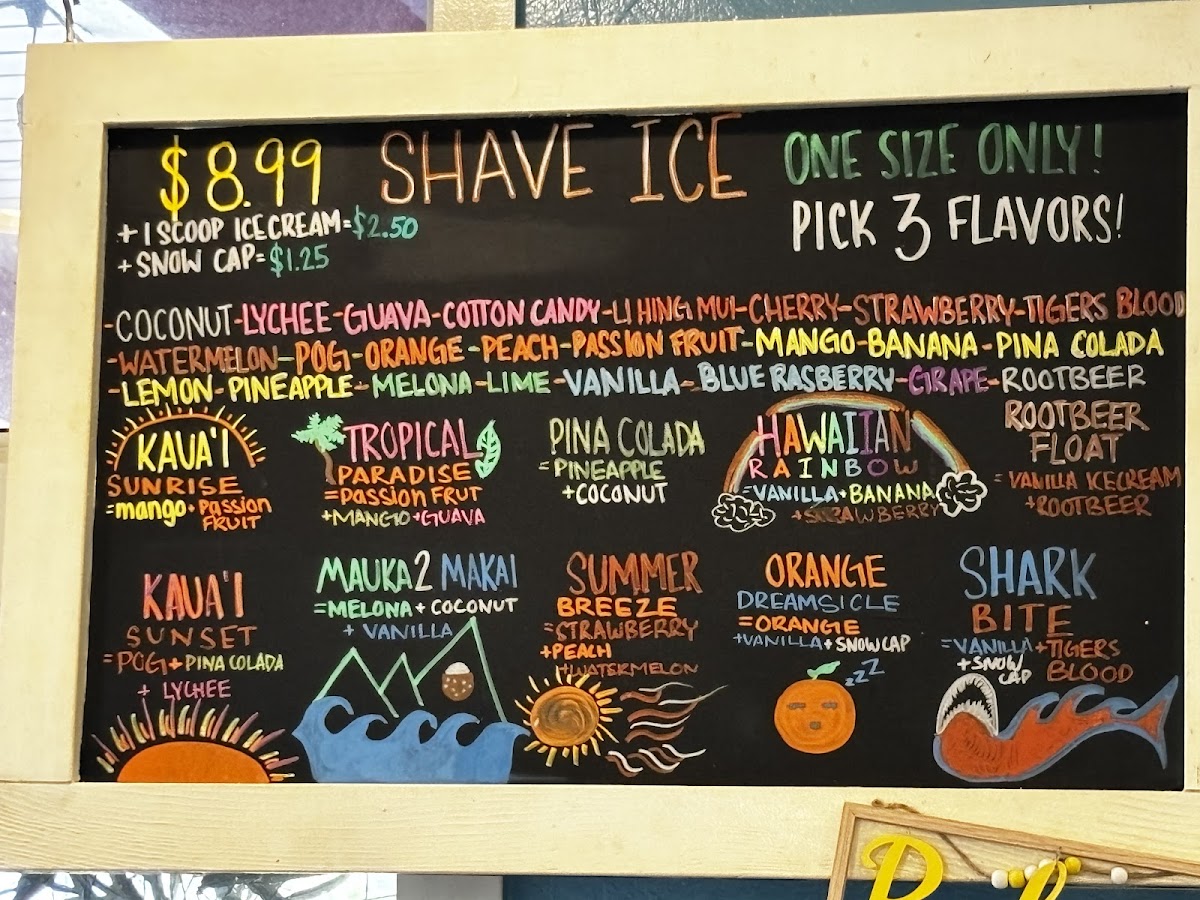 $8.99
SHAVE ICE
ONE SIZE ONLY!
PICK 3 FLAVORS!
+ 1 SCOOP ICE CREAM = $2.50
+ SNOW CAP = $1.25
-COCONUT-LYCHEE-GUAVA-COTTON CANDY-LI HING MUI-CHERRY-STRAWBERRY-TIGERS BLOOD
-WATERMELON-POG-ORANGE-PEACH-PASSION FRUIT-MANGO-BANANA-PINA COLADA
-LEMON-PINEAPPLE-MELONA-LIME-VANILLA-BLUE RASBERRY-GRAPE-ROOTBEER
KAUA'I
SUNRISE
=mango+Passion
FRUIT
TROPICAL
PARADISE
=Passion FRUT
+MANGO+GUAVA
PINA COLADA
=PINEAPPLE
+COCONUT
HAWAIIAN
RAINBOW
=VANILLA+BANANA
+STRAWBERRY
ROOTBEER
FLOAT
=VANILLA ICECREAM
+ROOTBEER
KAUA'I
SUNSET
=POG+PINA COLADA
+ LYCHEE
MAUKA 2 MAKAI
=MELONA + COCONUT
+ VANILLA
SUMMER
BREEZE
=STRAWBERRY
+PEACH
+WATERMELON
ORANGE
DREAMSICLE
=ORANGE
+VANILLA+SNOWCAP
zZZ
SHARK
BITE
=VANILLA+TIGERS
BLOOD
+SNOW
CAP